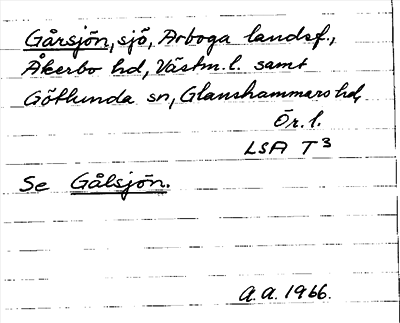 Gårsjön, sjö, Arboga landsf.,
Åkerbo hd, Västm.l. samt
Götlunda sn, Glanshammars hd,
Ör.l.
LSA T3
Se Gålsjön.
A.A. 1966.